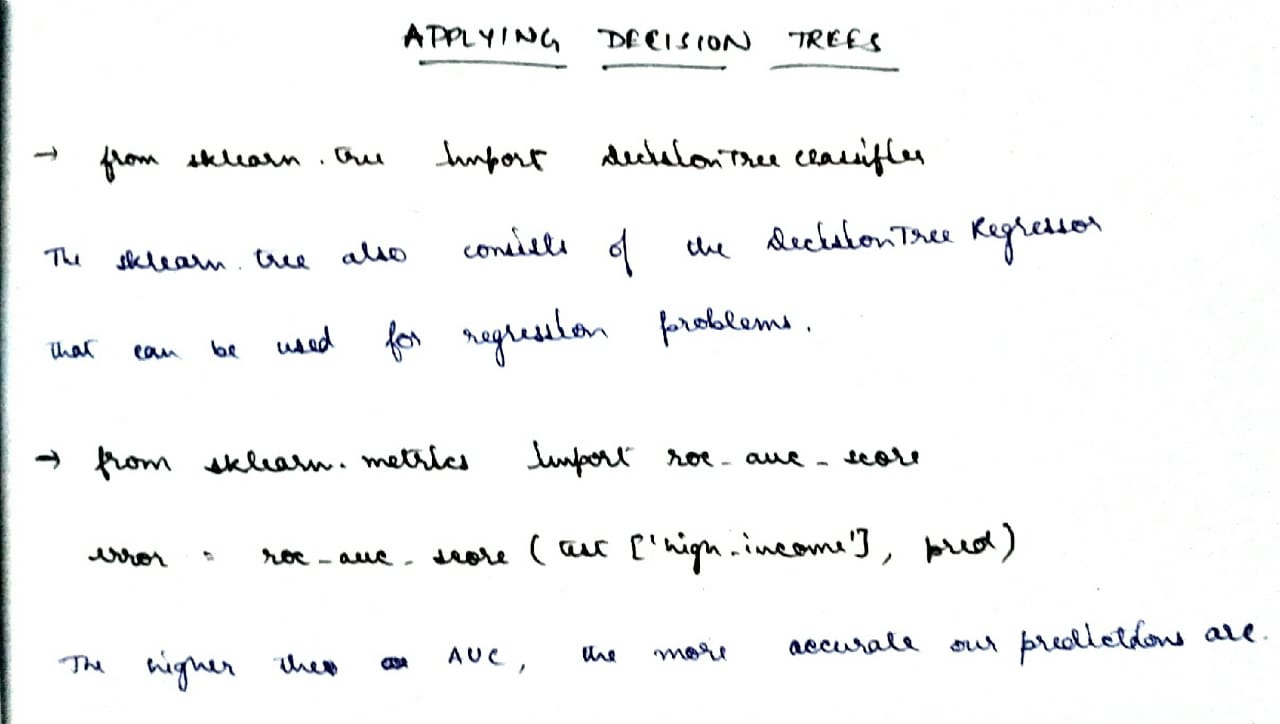 APPLYING DECISION TREES
→ from sklearn.tree import DecisionTreeClassifier
The sklearn.tree also consists of the DecisionTreeRegressor
that can be used for regression problems.
→ from sklearn.metrics import roc_auc_score
error = roc_auc_score (test ['high_income'], pred)
The higher the AUC, the more accurate our predictions are.